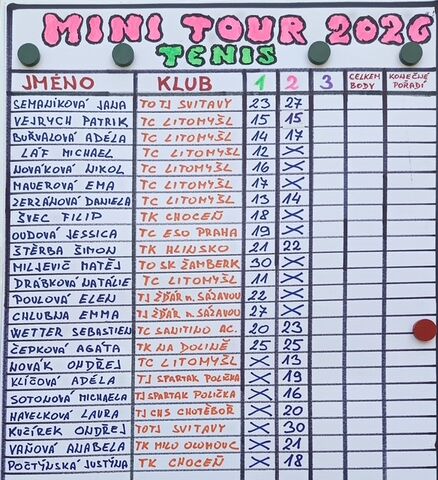 MINI TOUR 2026
TENIS
JMÉNO KLUB 1 2 3 CELKEM BODY KONEČNÉ POŘADÍ
SEMANÍKOVÁ JANA TOTJ SVITAVY 23 27
VEJRYCH PATRIK TC LITOMYŠL 15 15
BUŘVALOVÁ ADÉLA TC LITOMYŠL 14 17
LÁF MICHAEL TC LITOMYŠL 12 X
NOVÁKOVÁ NIKOL TC LITOMYŠL 16 X
MAUEROVÁ EMA TC LITOMYŠL 17 X
ZERZÁNOVÁ DANIELA TC LITOMYŠL 13 14
ŠVEC FILIP TK CHOCEŇ 18 X
OUDOVÁ JESSICA TC ESO PRAHA 19 X
ŠTĚRBA ŠIMON TK HLINSKO 21 22
MILJEVIČ MATĚJ TO SK ŽAMBERK 30 X
DRÁBKOVÁ NATÁLIE TC LITOMYŠL 11 X
POULOVÁ ELEN TJ ŽĎÁR n. SÁZAVOU 22 X
CHLUBNA EMMA TJ ŽĎÁR n. SÁZAVOU 27 X
WETTER SEBASTIEN TC SANITINO AC. 20 23
ČEPKOVÁ AGÁTA TK NA DOLINĚ 25 25
NOVÁK ONDŘEJ TC LITOMYŠL X 13
KLÍČOVÁ ADÉLA TJ SPARTAK POLIČKA X 19
SOTONOVÁ MICHAELA TJ SPARTAK POLIČKA X 16
HAVELKOVÁ LAURA TJ CHS CHOTĚBOŘ X 20
KUŽÍREK ONDŘEJ TOTJ SVITAVY X 30
VAŇOVÁ ANABELA TK MILO OLOMOUC X 21
POČTÝNSKÁ JUSTÝNA TK CHOCEŇ X 18